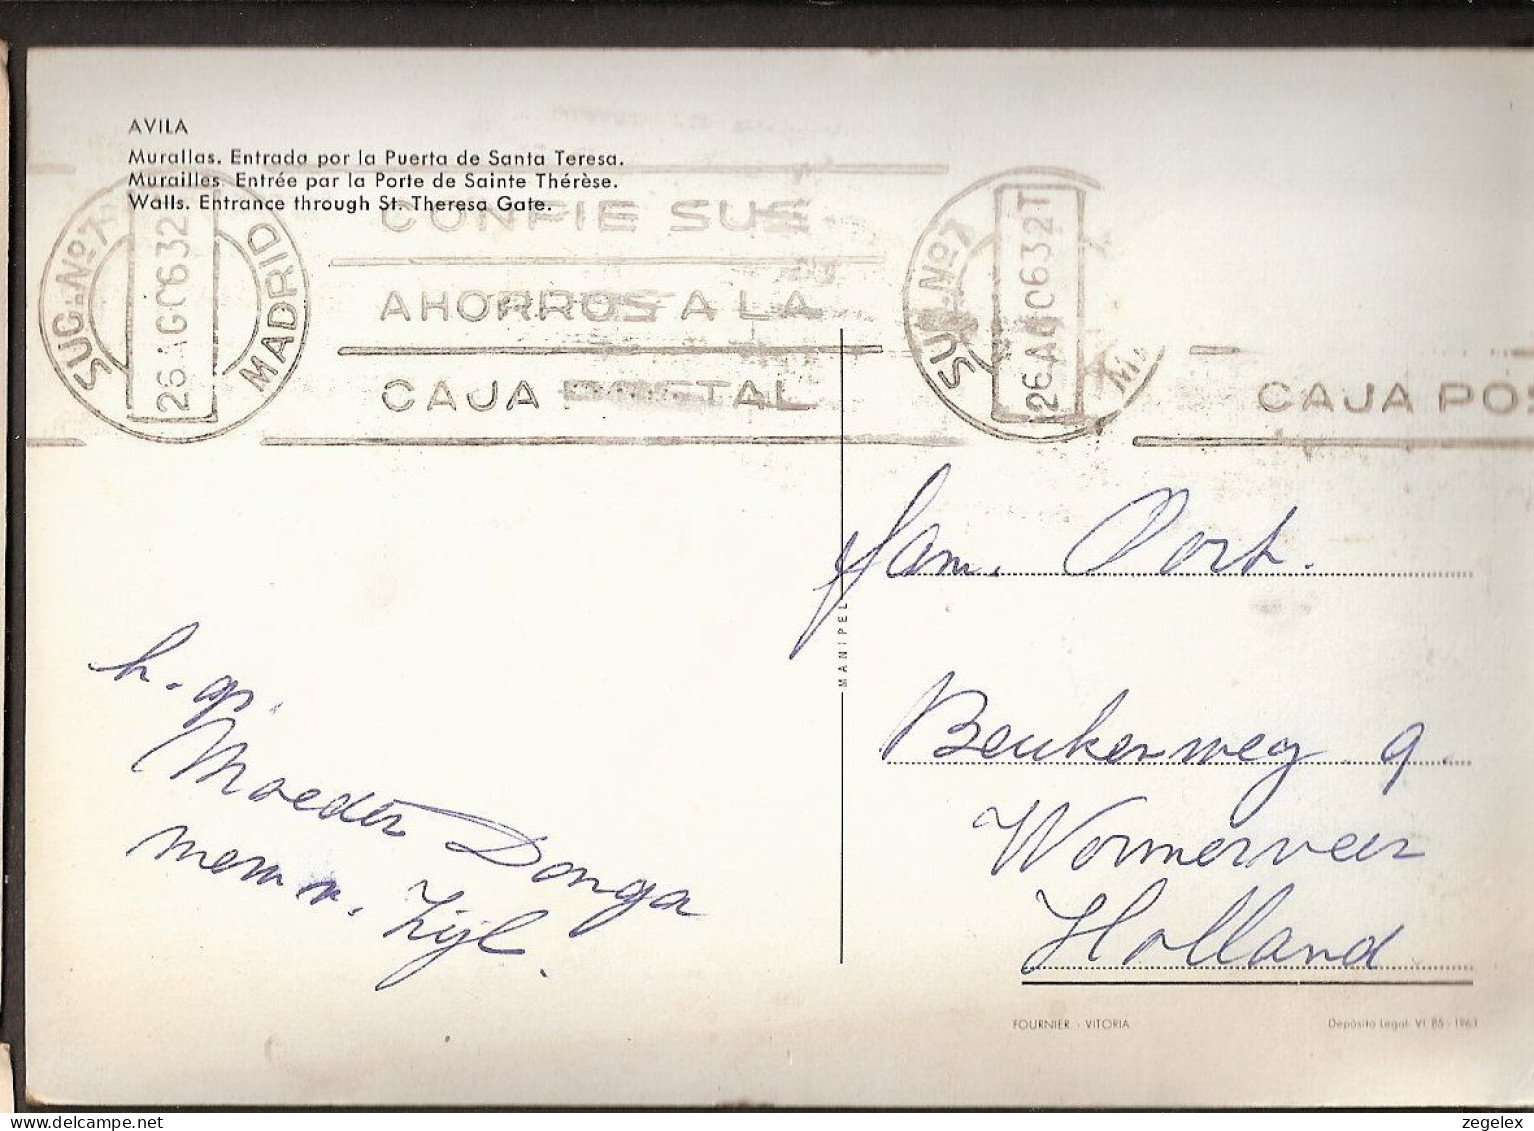 AVILA
Murallas. Entrada por la Puerta de Santa Teresa.
Murailles. Entrée par la Porte de Sainte Thérèse.
Walls. Entrance through St. Theresa Gate.
SUC. Nº 7 MADRID
26 AGO 63 2T
CONFIE SUS
AHORROS A LA
CAJA POSTAL
SUC. Nº 7 M
26 AGO 63 2T
CAJA POS
fam. Oort.
Beukenweg 9.
Wormerveer
Holland
h. gr.
Moeder Donga
mevr v. Zijl.
MANIPEL
FOURNIER - VITORIA
Depósito Legal: VI. 85 - 1963
zegelex